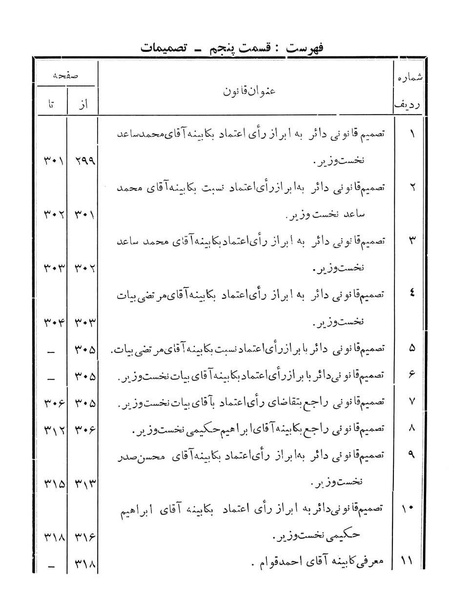 فهرست : قسمت پنجم ــ تصمیمات
شماره ردیف عنوان قانون صفحه
از تا
۱ تصمیم قانونی دائر به ابراز رأی اعتماد بکابینه آقای محمد ساعد
نخست‌وزیر. ۲۹۹ ۳۰۱
۲ تصمیم قانونی دائر به ابراز رأی اعتماد نسبت بکابینه آقای محمد
ساعد نخست وزیر. ۳۰۱ ۳۰۲
۳ تصمیم قانونی دائر به ابراز رأی اعتماد بکابینه آقای محمد ساعد
نخست‌وزیر. ۳۰۲ ۳۰۳
۴ تصمیم قانونی دائر به ابراز رأی اعتماد بکابینه آقای مرتضی بیات
نخست‌وزیر. ۳۰۳ ۳۰۴
۵ تصمیم قانونی دائر با براز رأی اعتماد نسبت بکابینه آقای مرتضی بیات. ۳۰۵ ــ
۶ تصمیم قانونی دائر با براز رأی اعتماد بکابینه آقای بیات نخست‌وزیر. ۳۰۵ ــ
۷ تصمیم قانونی راجع بتقاضای رأی اعتماد بآقای بیات نخست‌وزیر. ۳۰۵ ۳۰۶
۸ تصمیم قانونی راجع بکابینه آقای ابراهیم حکیمی نخست‌وزیر. ۳۰۶ ۳۱۲
۹ تصمیم قانونی دائر به ابراز رأی اعتماد بکابینه آقای محسن صدر
نخست‌وزیر. ۳۱۳ ۳۱۵
۱۰ تصمیم قانونی دائر به ابراز رأی اعتماد بکابینه آقای ابراهیم
حکیمی نخست‌وزیر. ۳۱۶ ۳۱۸
۱۱ معرفی کابینه آقای احمد قوام. ۳۱۸ ــ